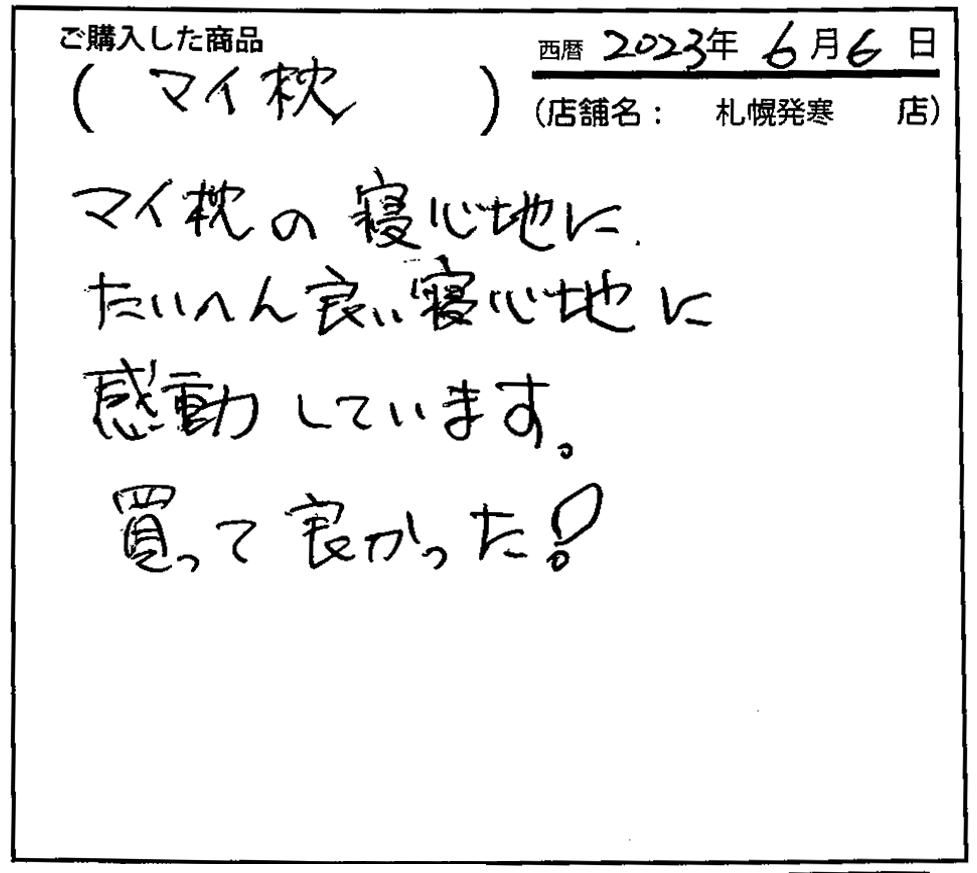 ご購入した商品
西暦 2023年 6月6日
(マイ枕)
(店舗名: 札幌発寒 店)
マイ枕の寝心地に
たいへん良い寝心地に
感動しています。
買って良かった!